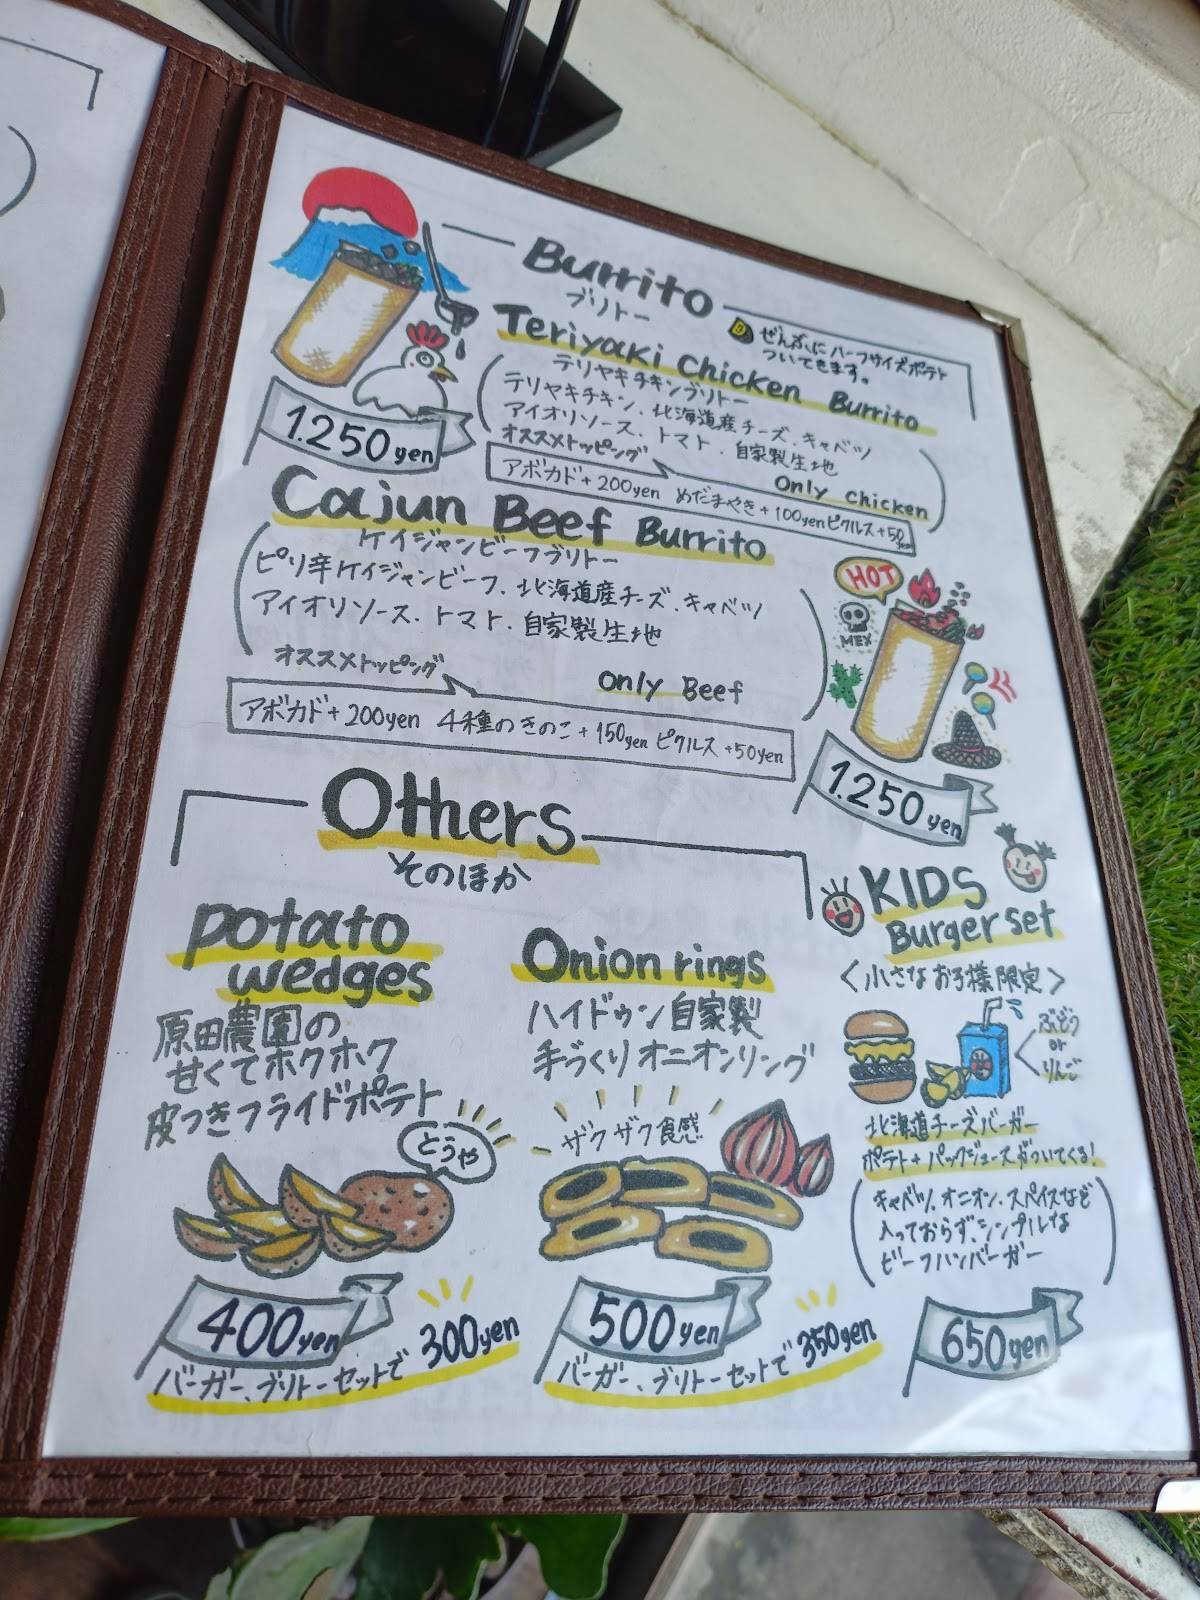 Burrito
ブリトー
ぜんぶにハーフサイズポテト
ついてきます。
Teriyaki Chicken Burrito
テリヤキチキンブリトー
テリヤキチキン、北海道産チーズ、キャベツ
アイオリソース、トマト、自家製生地
オススメトッピング
Only chicken
アボカド+200yen めだまやき+100yen ピクルス+50yen
1.250yen
Cajun Beef Burrito
ケイジャンビーフブリトー
ピリ辛ケイジャンビーフ、北海道産チーズ、キャベツ
アイオリソース、トマト、自家製生地
オススメトッピング
only Beef
アボカド+200yen 4種のきのこ+150yen ピクルス+50yen
HOT
MEX
1.250yen
Others
そのほか
potato
wedges
原田農園の
甘くてホクホク
皮つきフライドポテト
とうや
400yen
バーガー、ブリトーセットで 300yen
Onion rings
ハイドゥン自家製
手づくりオニオンリング
ザクザク食感
500yen
バーガー、ブリトーセットで 350yen
KIDS
Burger set
<小さなお子様限定>
ぶどう
or
りんご
北海道チーズバーガー
ポテト+パックジュースがついてくる!
キャベツ、オニオン、スパイスなど
入っておらず、シンプルな
ビーフハンバーガー
650yen